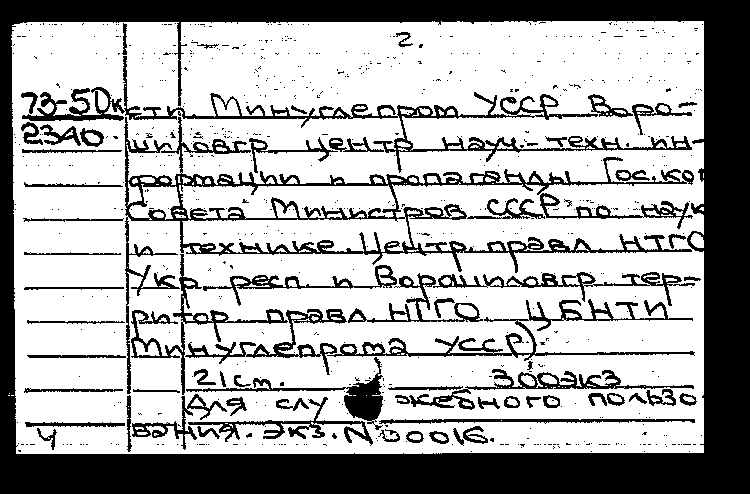 2.
73-50к сти. Минуглепром УССР. Воро-
2340. шиловгр. центр науч.-техн. ин-
формации и пропаганды Гос.ком
Совета Министров СССР по наук
и технике. Центр. правл. НТГО
Укр. респ. и Ворошиловгр. тер-
ритор. правл. НТГО. ЦБНТИ
Минуглепрома УССР).
21см. 300экз
Для слу жебного пользо
ч вания. экз. N 00016.